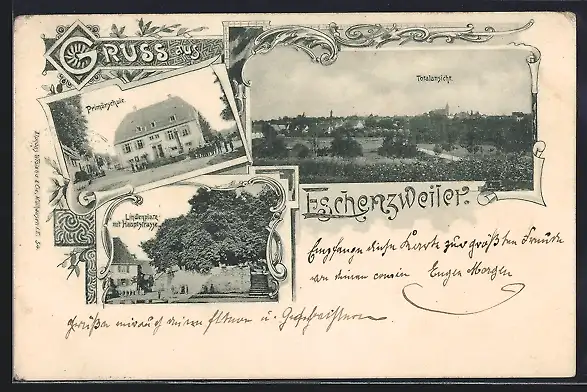 Gruss aus
Primärschule.
Totalansicht.
Lindenplatz
mit Hauptstrasse.
Eschenzweiler.
Empfange diese Karte zur größten Freude
von deinem cousin Eugen Morgen
Grüße mir auch deine Eltern u. Geschwistern